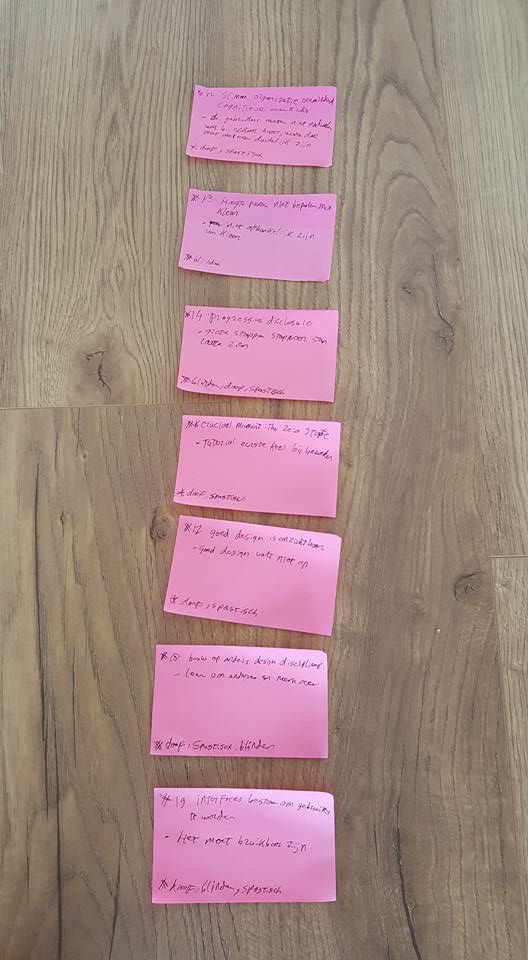 #12 Slimme organisatie
cognitieve overzicht
- gebruikers moeten niet
duidelijk zijn
* doof, spastisch
#13 Hoogte punten niet bepalen met
kleur
- niet afhankelijk zijn
van kleur
*blinden
#14 progressive disclosure
- grote stappen stap voor stap
laten zien
*blinden, doof, spastisch
Crucial Moment: The Zero State
- Tutorial eerste keer bij bezoeken
* doof, spastisch
#17 good design is onzichtbaar
- Good design valt niet op
* doof, spastisch
#18 bouw op anders design discipline
- Leer van anderen en
* doof, spastisch, blinden
#19 interfaces bestaan om gebruikt
te worden
- Het moet bruikbaar zijn
* doof, blinden, spastisch